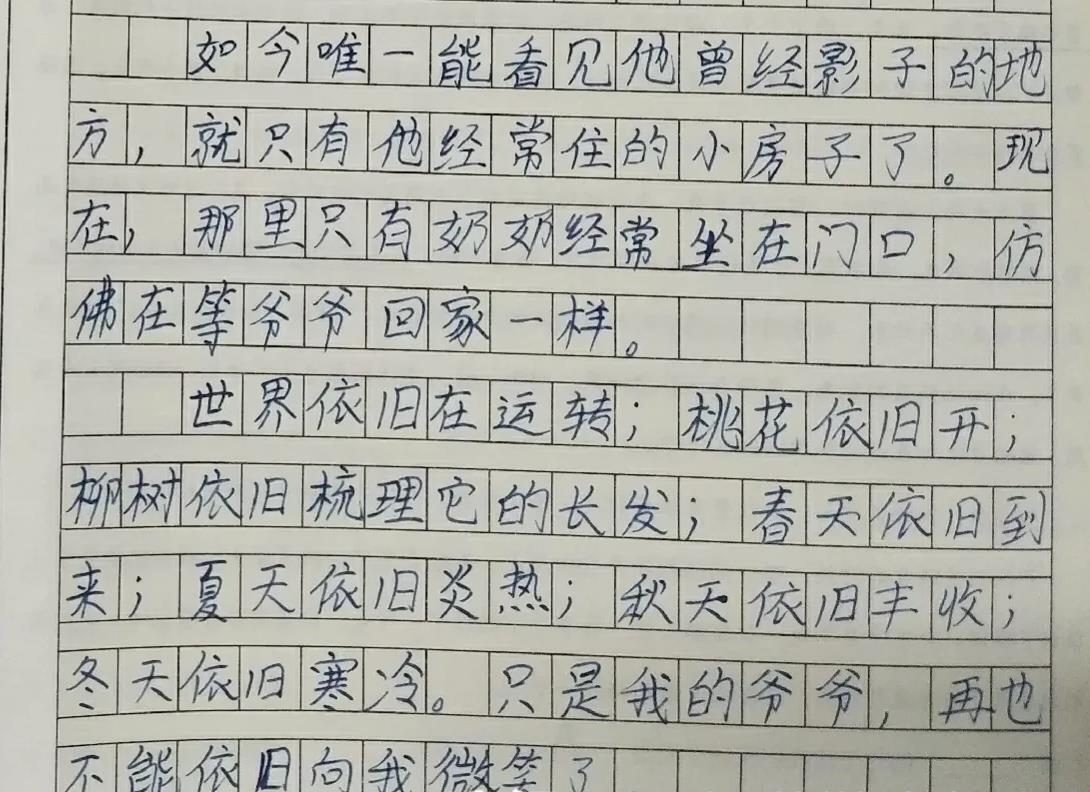 如今唯一能看见他曾经影子的地
方，就只有他经常住的小房子了。现
在，那里只有奶奶经常坐在门口，仿
佛在等爷爷回家一样。
世界依旧在运转；桃花依旧开；
柳树依旧梳理它的长发；春天依旧到
来；夏天依旧炎热；秋天依旧丰收；
冬天依旧寒冷。只是我的爷爷，再也
不能依旧向我微笑了